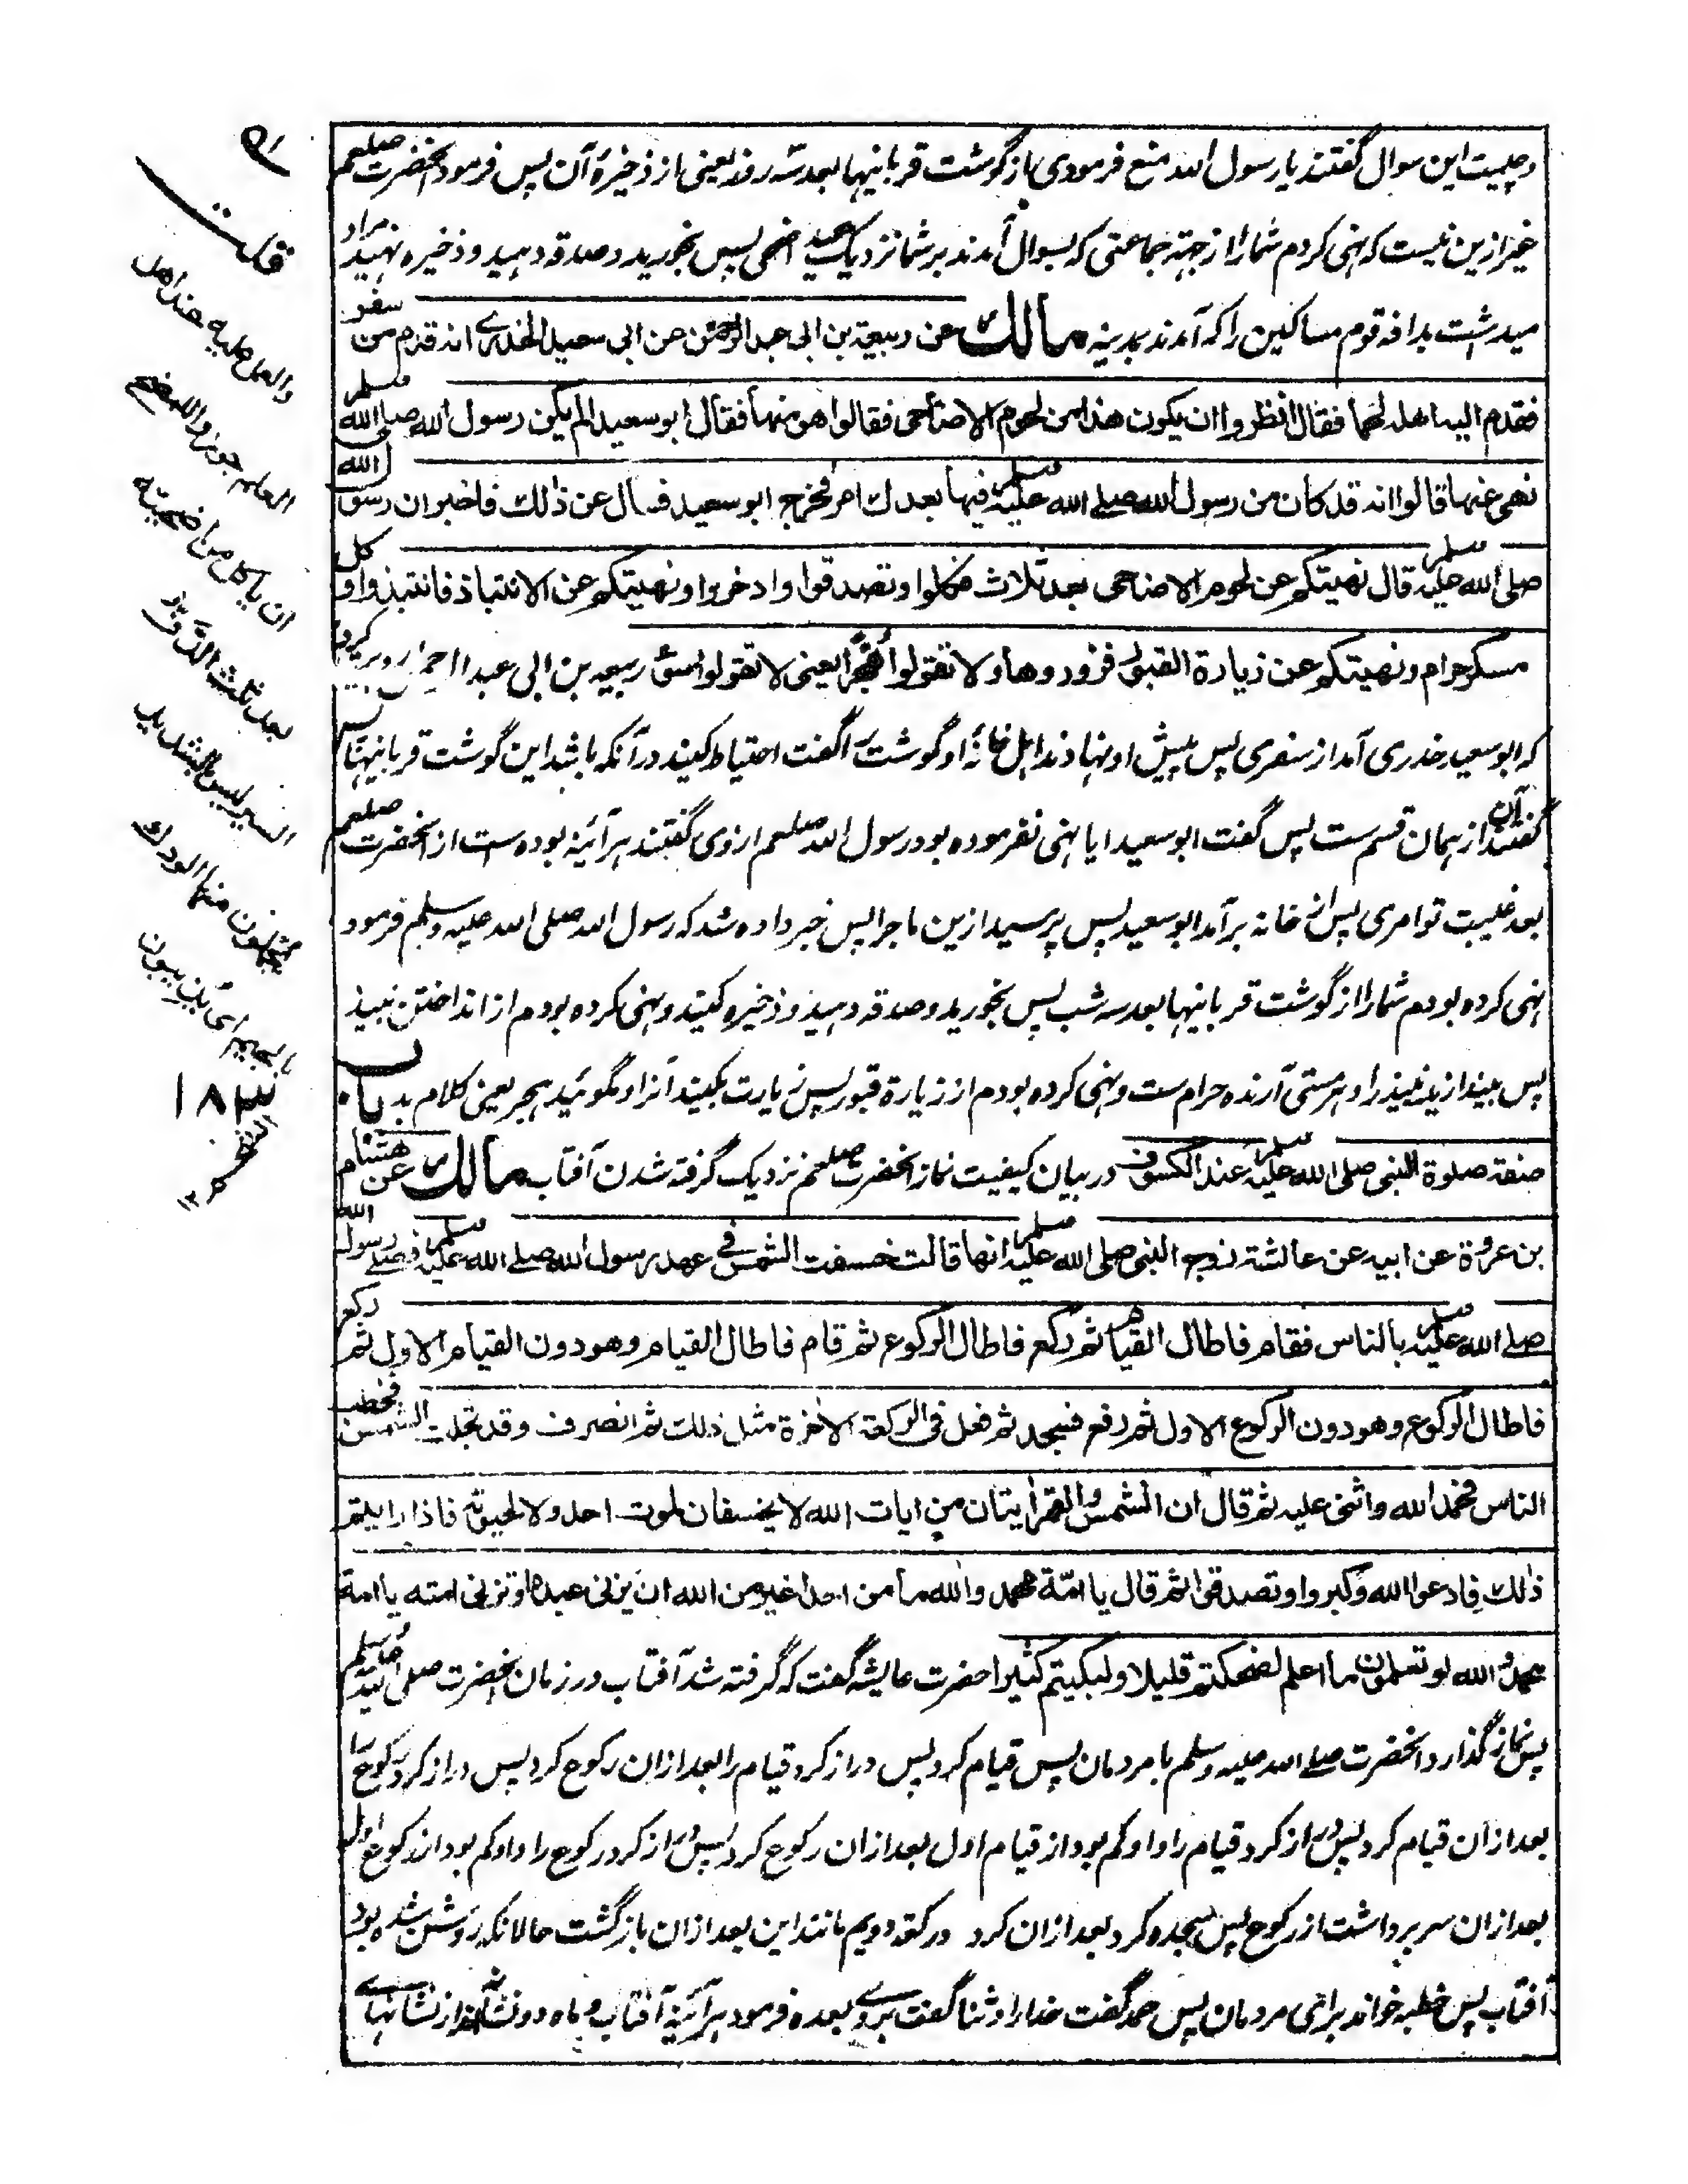 وچیست این سوال گفتند یا رسول الله منع فرمودی از گوشت قربانیها بعد سه روز یعنی از ذخیرهٔ آن پس فرمود آنحضرت صلعم
غیر ازین نیست که نهی کردم شما را از جهته جماعتی که بسوال آمدند بر شما نزدیک عید اضحی پس بخورید و صدقه دهید و ذخیره نهید مراد
میداشت بدافه قوم مساکین را که آمدند بمدینه مالك عن ربیعة بن ابی عبد الرحمن عن ابی سعید الخدری انه قدم من سفر
فقدم الیه اهله لحما فقال انظروا ان یکون هذا من لحوم الاضاحی فقالوا هو منها فقال ابو سعید الم یکن رسول الله صلی الله علیه وسلم
نهی عنها قالوا انه قد کان من رسول الله صلی الله علیه وسلم فیها بعدك امر فخرج ابو سعید فسال عن ذالك فاخبر ان رسول الله
صلی الله علیه وسلم قال نهیتکم عن لحوم الاضاحی بعد ثلاث فکلوا وتصدقوا وادخروا ونهیتکم عن الانتباذ فانتبذوا وکل
مسکر حرام ونهیتکم عن زیارة القبور فزوروها ولا تقولوا هجرا یعنی لا تقولوا سوء ربیعه بن ابی عبد الرحمن روایت کرد
که ابو سعید خدری آمد از سفری پس پیش او نهادند اهل خانهٔ او گوشت را گفت احتیاط کنید در آنکه باشد این گوشت قربانیها پس
گفتند آن از همان قسم ست پس گفت ابو سعید ایا نهی نفرموده بود رسول الله صلعم ازوی گفتند هر آئینه بوده ست از آنحضرت صلعم
بعد غیبت تو امری پس از خانه برآمد ابو سعید پس پرسید ازین ماجرا پس خبر داده شد که رسول الله صلی الله علیه وسلم فرمود
نهی کرده بودم شما را از گوشت قربانیها بعد سه شب پس بخورید و صدقه دهید و ذخیره کنید و نهی کرده بودم از انداختن نبیذ
پس بیندازید نبیذ را و هر مستی آرنده حرام ست و نهی کرده بودم از زیارة قبور پس زیارت بکنید آنرا و مگوئید هجر یعنی کلام بد باب
صفة صلوة النبی صلی الله علیه وسلم عند الکسوف در بیان کیفیت نماز آنحضرت صلعم نزدیک گرفته شدن آفتاب مالك عن هشام
بن عروة عن ابیه عن عائشة زوج النبی صلی الله علیه وسلم انها قالت خسفت الشمس فی عهد رسول الله صلی الله علیه وسلم فصلی رسول الله
صلی الله علیه وسلم بالناس فقام فاطال القیام ثم رکع فاطال الرکوع ثم قام فاطال القیام وهو دون القیام الاول ثم رکع
فاطال الرکوع وهو دون الرکوع الاول ثم رفع فسجد ثم فعل فی الرکعة الاخرة مثل ذلك ثم انصرف وقد تجلت الشمس فخطب
الناس فحمد الله واثنی علیه ثم قال ان الشمس والقمر ایتان من ایات الله لا یخسفان لموت احد ولا لحیوته فاذا رایتم
ذلك فادعوا الله وکبروا وتصدقوا ثم قال یا امّة محمد والله ما من احد اغیر من الله ان یزنی عبده او تزنی امته یا امة
محمد والله لو تعلمون ما اعلم لضحکتم قلیلا ولبکیتم کثیرا حضرت عایشه گفت که گرفته شد آفتاب در زمان آنحضرت صلی الله علیه وسلم
پس نماز گذارد آنحضرت صلے الله علیه وسلم با مردمان پس قیام کرد پس دراز کرد قیام را بعد ازان رکوع کرد پس دراز کرد رکوع را
بعد ازان قیام کرد پس دراز کرد قیام را و او کم بود از قیام اول بعد ازان رکوع کرد پس دراز کرد رکوع را و او کم بود از رکوع اول
بعد ازان سر برداشت از رکوع پس سجده کرد بعد ازان کرد در رکعة دویم مانند این بعد ازان بازگشت حالانکه روشن شده بود
آفتاب پس خطبه خواند برای مردمان پس حمد گفت خدا را و ثنا گفت بروے بعده فرمود هر آئینه آفتاب و ماه دو نشانه اند از نشانهاے
قلت
والعمل علیه عند اهل
العلم جوزوا للمضحی
ان یاکل من اضحیته
بعد ثلث الدَّفّ
السیر لیس بالشدید
یجملون منها الودك
بالجیم ای یُذیبون
۱۲